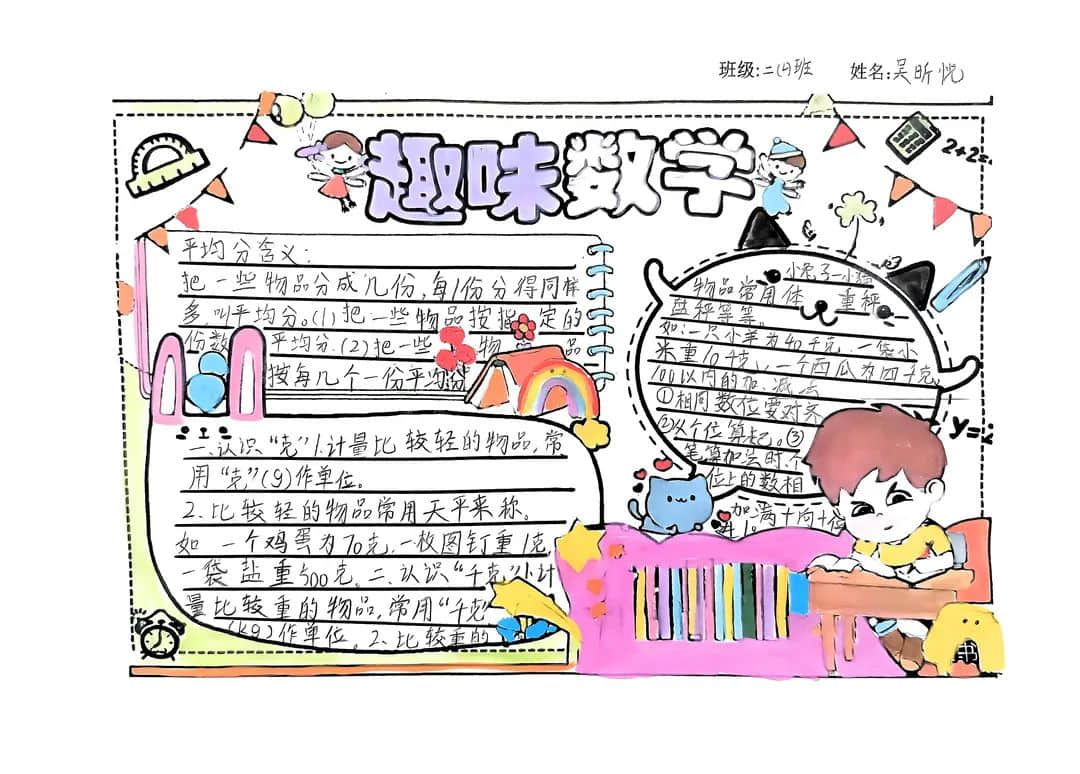 班级:二(4)班 姓名:吴昕悦
趣味数学
2+2=
平均分含义:
把一些物品分成几份,每1份分得同样
多叫平均分。(1)把一些物品按指定的
份数平均分.(2)把一些物品
按每几个一份平均分
一、认识“克”1.计量比较轻的物品,常
用“克”(g)作单位。
2.比较轻的物品常用天平来称。
如一个鸡蛋为70克,一枚图钉重1克
一袋盐重500克。二、认识“千克”1.计
量比较重的物品,常用“千克”
(kg)作单位。2、比较重的
物品常用体重秤
盘秤等等。
如:一只小羊为40千克,一袋小
米重10千克,一个西瓜为四千克
100以内的加、减法
①相同数位要对齐
②从个位算起。③
笔算加法时,个
位上的数相
加满十向十位
进1。
y=2
书